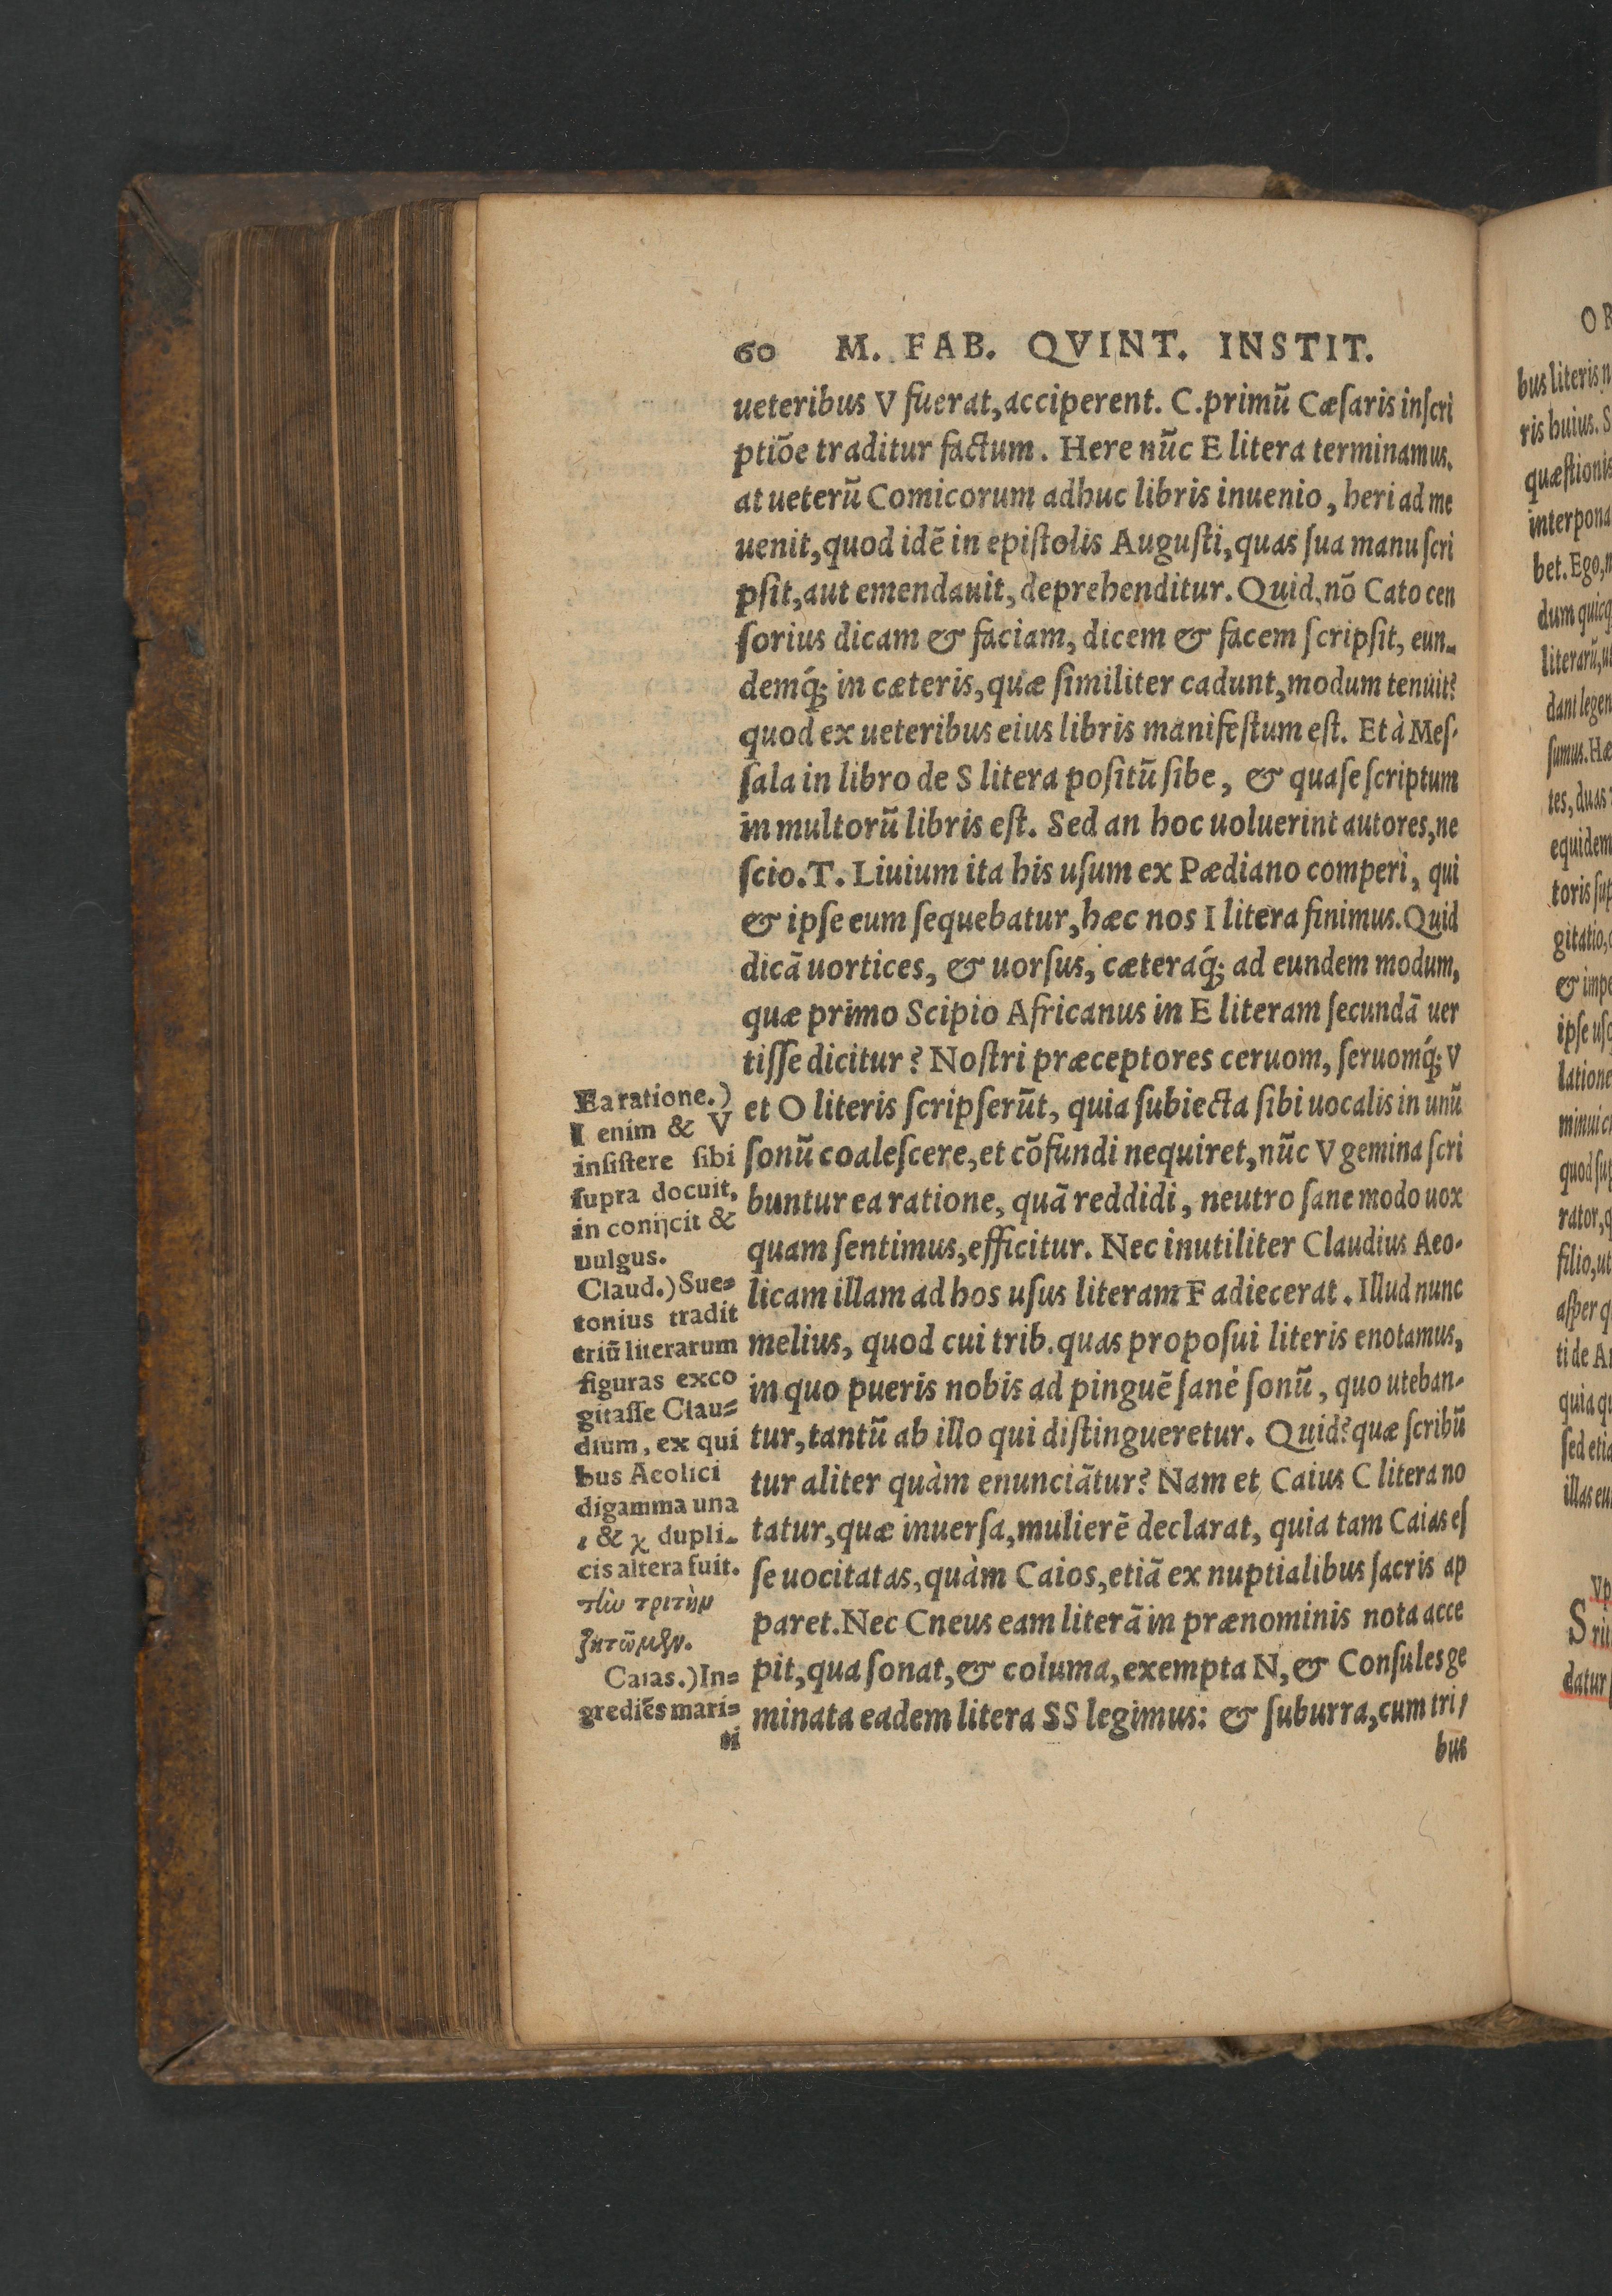 60 M. FAB. QVINT. INSTIT.
ueteribus V fuerat, acciperent. C. primũ Cæſaris inſcri
ptiõe traditur factum. Here nũc E litera terminamus,
at ueterũ Comicorum adhuc libris inuenio, heri ad me
uenit, quod idẽ in epiſtolis Auguſti, quas ſua manu ſcri
pſit, aut emendauit, deprehenditur. Quid, nõ Cato cen
ſorius dicam & faciam, dicem & facem ſcripſit, eun-
demq́; in cæteris, quæ ſimiliter cadunt, modum tenuit?
quod ex ueteribus eius libris manifeſtum eſt. Et à Meſ-
ſala in libro de S litera poſitũ ſibe, & quaſe ſcriptum
in multorũ libris eſt. Sed an hoc uoluerint autores, ne
ſcio. T. Liuium ita his uſum ex Pædiano comperi, qui
& ipſe eum ſequebatur, hæc nos I litera finimus. Quid
dicã uortices, & uorſus, cæteraq́; ad eundem modum,
quæ primo Scipio Africanus in E literam ſecundã uer
tiſſe dicitur? Noſtri præceptores ceruom, ſeruomq́; V
et O literis ſcripſerũt, quia ſubiecta ſibi uocalis in unũ
ſonũ coaleſcere, et cõfundi nequiret, nũc V gemina ſcri
buntur ea ratione, quã reddidi, neutro ſane modo uox
quam ſentimus, efficitur. Nec inutiliter Claudius Aeo-
licam illam ad hos uſus literam F adiecerat. Illud nunc
melius, quod cui trib. quas propoſui literis enotamus,
in quo pueris nobis ad pinguẽ ſanè ſonũ, quo uteban-
tur, tantũ ab illo qui diſtingueretur. Quid? quæ ſcribũ
tur aliter quàm enunciãtur? Nam et Caius C litera no
tatur, quæ inuerſa, mulierẽ declarat, quia tam Caias eſ
ſe uocitatas, quàm Caios, etiã ex nuptialibus ſacris ap
paret. Nec Cneus eam literã in prænominis nota acce
pit, qua ſonat, & columa, exempta N, & Conſules ge
minata eadem litera SS legimus: & ſuburra, cum tri-
bus
Ea ratione.)
I enim & V
inſiſtere ſibi
ſupra docuit,
in conijcit &
uulgus.
Claud.) Sue-
tonius tradit
triũ literarum
figuras exco
gitaſſe Clau-
dium, ex qui
bus Aeolici
digamma una
ι & χ dupli-
cis altera fuit.
τὴν τρίτην
ζητῶμεν.
Caias.) In-
grediẽs mari-
ti
bus literis n
ris huius. S
quæſtionis
interpona
bet. Ego, n
dum quicq
literarũ, u
dani legen
ſumus. Hæ
tes, duas
equidem
toris ſup
gitatio,
& impe
ipſe uſ
latione
minui c
quod ſup
rator, q
filio, ut
aſper q
ti de A
quia qu
ſed etia
illas eu
datur